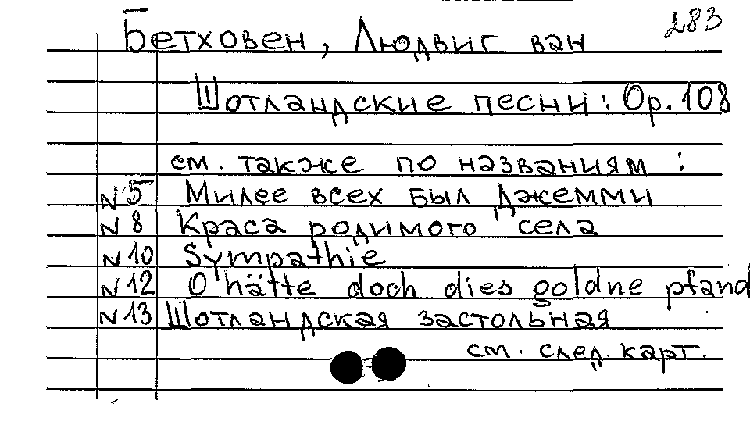 283
Бетховен, Людвиг ван
Шотландские песни: Op. 108
см. также по названиям:
N 5 Милее всех был Джемми
N 8 Краса родимого села
N 10 Sympathie
N 12 O hätte doch dies goldne pfand
N 13 Шотландская застольная
см. след. карт.